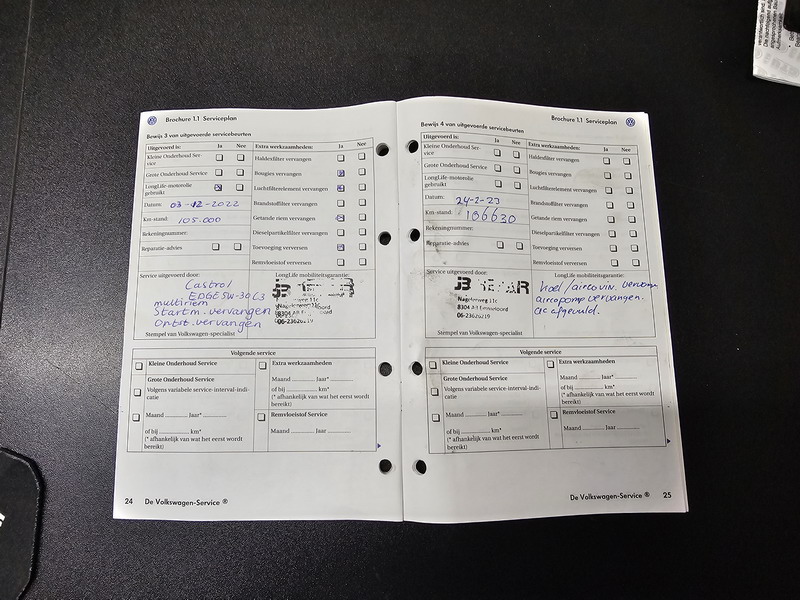 Brochure 1.1 Serviceplan
Bewijs 3 van uitgevoerde servicebeurten
Uitgevoerd is: Ja Nee
Kleine Onderhoud Ser-
vice
Grote Onderhoud Service
LongLife-motorolie
gebruikt
Datum: 03-12-2022
Km-stand: 105.000
Rekeningnummer:
Reparatie-advies
Extra werkzaamheden: Ja Nee
Haldexfilter vervangen
Bougies vervangen
Luchtfilterelement vervangen
Brandstoffilter vervangen
Getande riem vervangen
Dieselpartikelfilter vervangen
Toevoeging verversen
Remvloeistof verversen
Service uitgevoerd door:
Castrol
EDGE 5W-30 C3
multiriem
Startm. vervangen
Ontst. vervangen
Stempel van Volkswagen-specialist
LongLife mobiliteitsgarantie:
JB
Nagelerweg 11c
8304 AB Emmeloord
06-23626219
Volgende service
Kleine Onderhoud Service
Grote Onderhoud Service
Volgens variabele service-interval-indi-
catie
Maand Jaar*
of bij km*
(* afhankelijk van wat het eerst wordt
bereikt)
Extra werkzaamheden
Maand Jaar*
of bij km*
(* afhankelijk van wat het eerst wordt
bereikt)
Remvloeistof Service
Maand Jaar
24 De Volkswagen-Service ®
Brochure 1.1 Serviceplan
Bewijs 4 van uitgevoerde servicebeurten
Uitgevoerd is: Ja Nee
Kleine Onderhoud Ser-
vice
Grote Onderhoud Service
LongLife-motorolie
gebruikt
Datum: 24-2-23
Km-stand: 106630
Rekeningnummer:
Reparatie-advies
Extra werkzaamheden: Ja Nee
Haldexfilter vervangen
Bougies vervangen
Luchtfilterelement vervangen
Brandstoffilter vervangen
Getande riem vervangen
Dieselpartikelfilter vervangen
Toevoeging verversen
Remvloeistof verversen
Service uitgevoerd door:
JB REPAIR
Nagelerweg 11c
8304 AB Emmeloord
06-23626219
Stempel van Volkswagen-specialist
LongLife mobiliteitsgarantie:
koel/airco
aircopomp vervangen.
ac afgevuld.
Volgende service
Kleine Onderhoud Service
Grote Onderhoud Service
Volgens variabele service-interval-indi-
catie
Maand Jaar*
of bij km*
(* afhankelijk van wat het eerst wordt
bereikt)
Extra werkzaamheden
Maand Jaar*
of bij km*
(* afhankelijk van wat het eerst wordt
bereikt)
Remvloeistof Service
Maand Jaar
De Volkswagen-Service ® 25